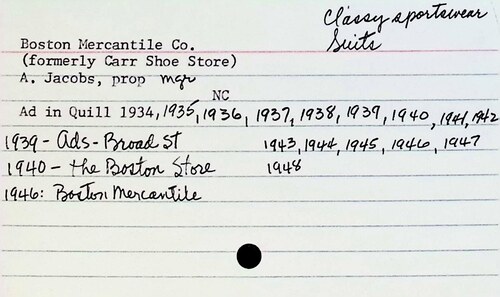 Classy sportswear
Suits
Boston Mercantile Co.
(formerly Carr Shoe Store)
A. Jacobs, prop mgr
NC
Ad in Quill 1934, 1935, 1936, 1937, 1938, 1939, 1940, 1941, 1942
1939 - Ads - Broad St 1943, 1944, 1945, 1946, 1947
1940 - the Boston Store 1948
1946: Boston Mercantile